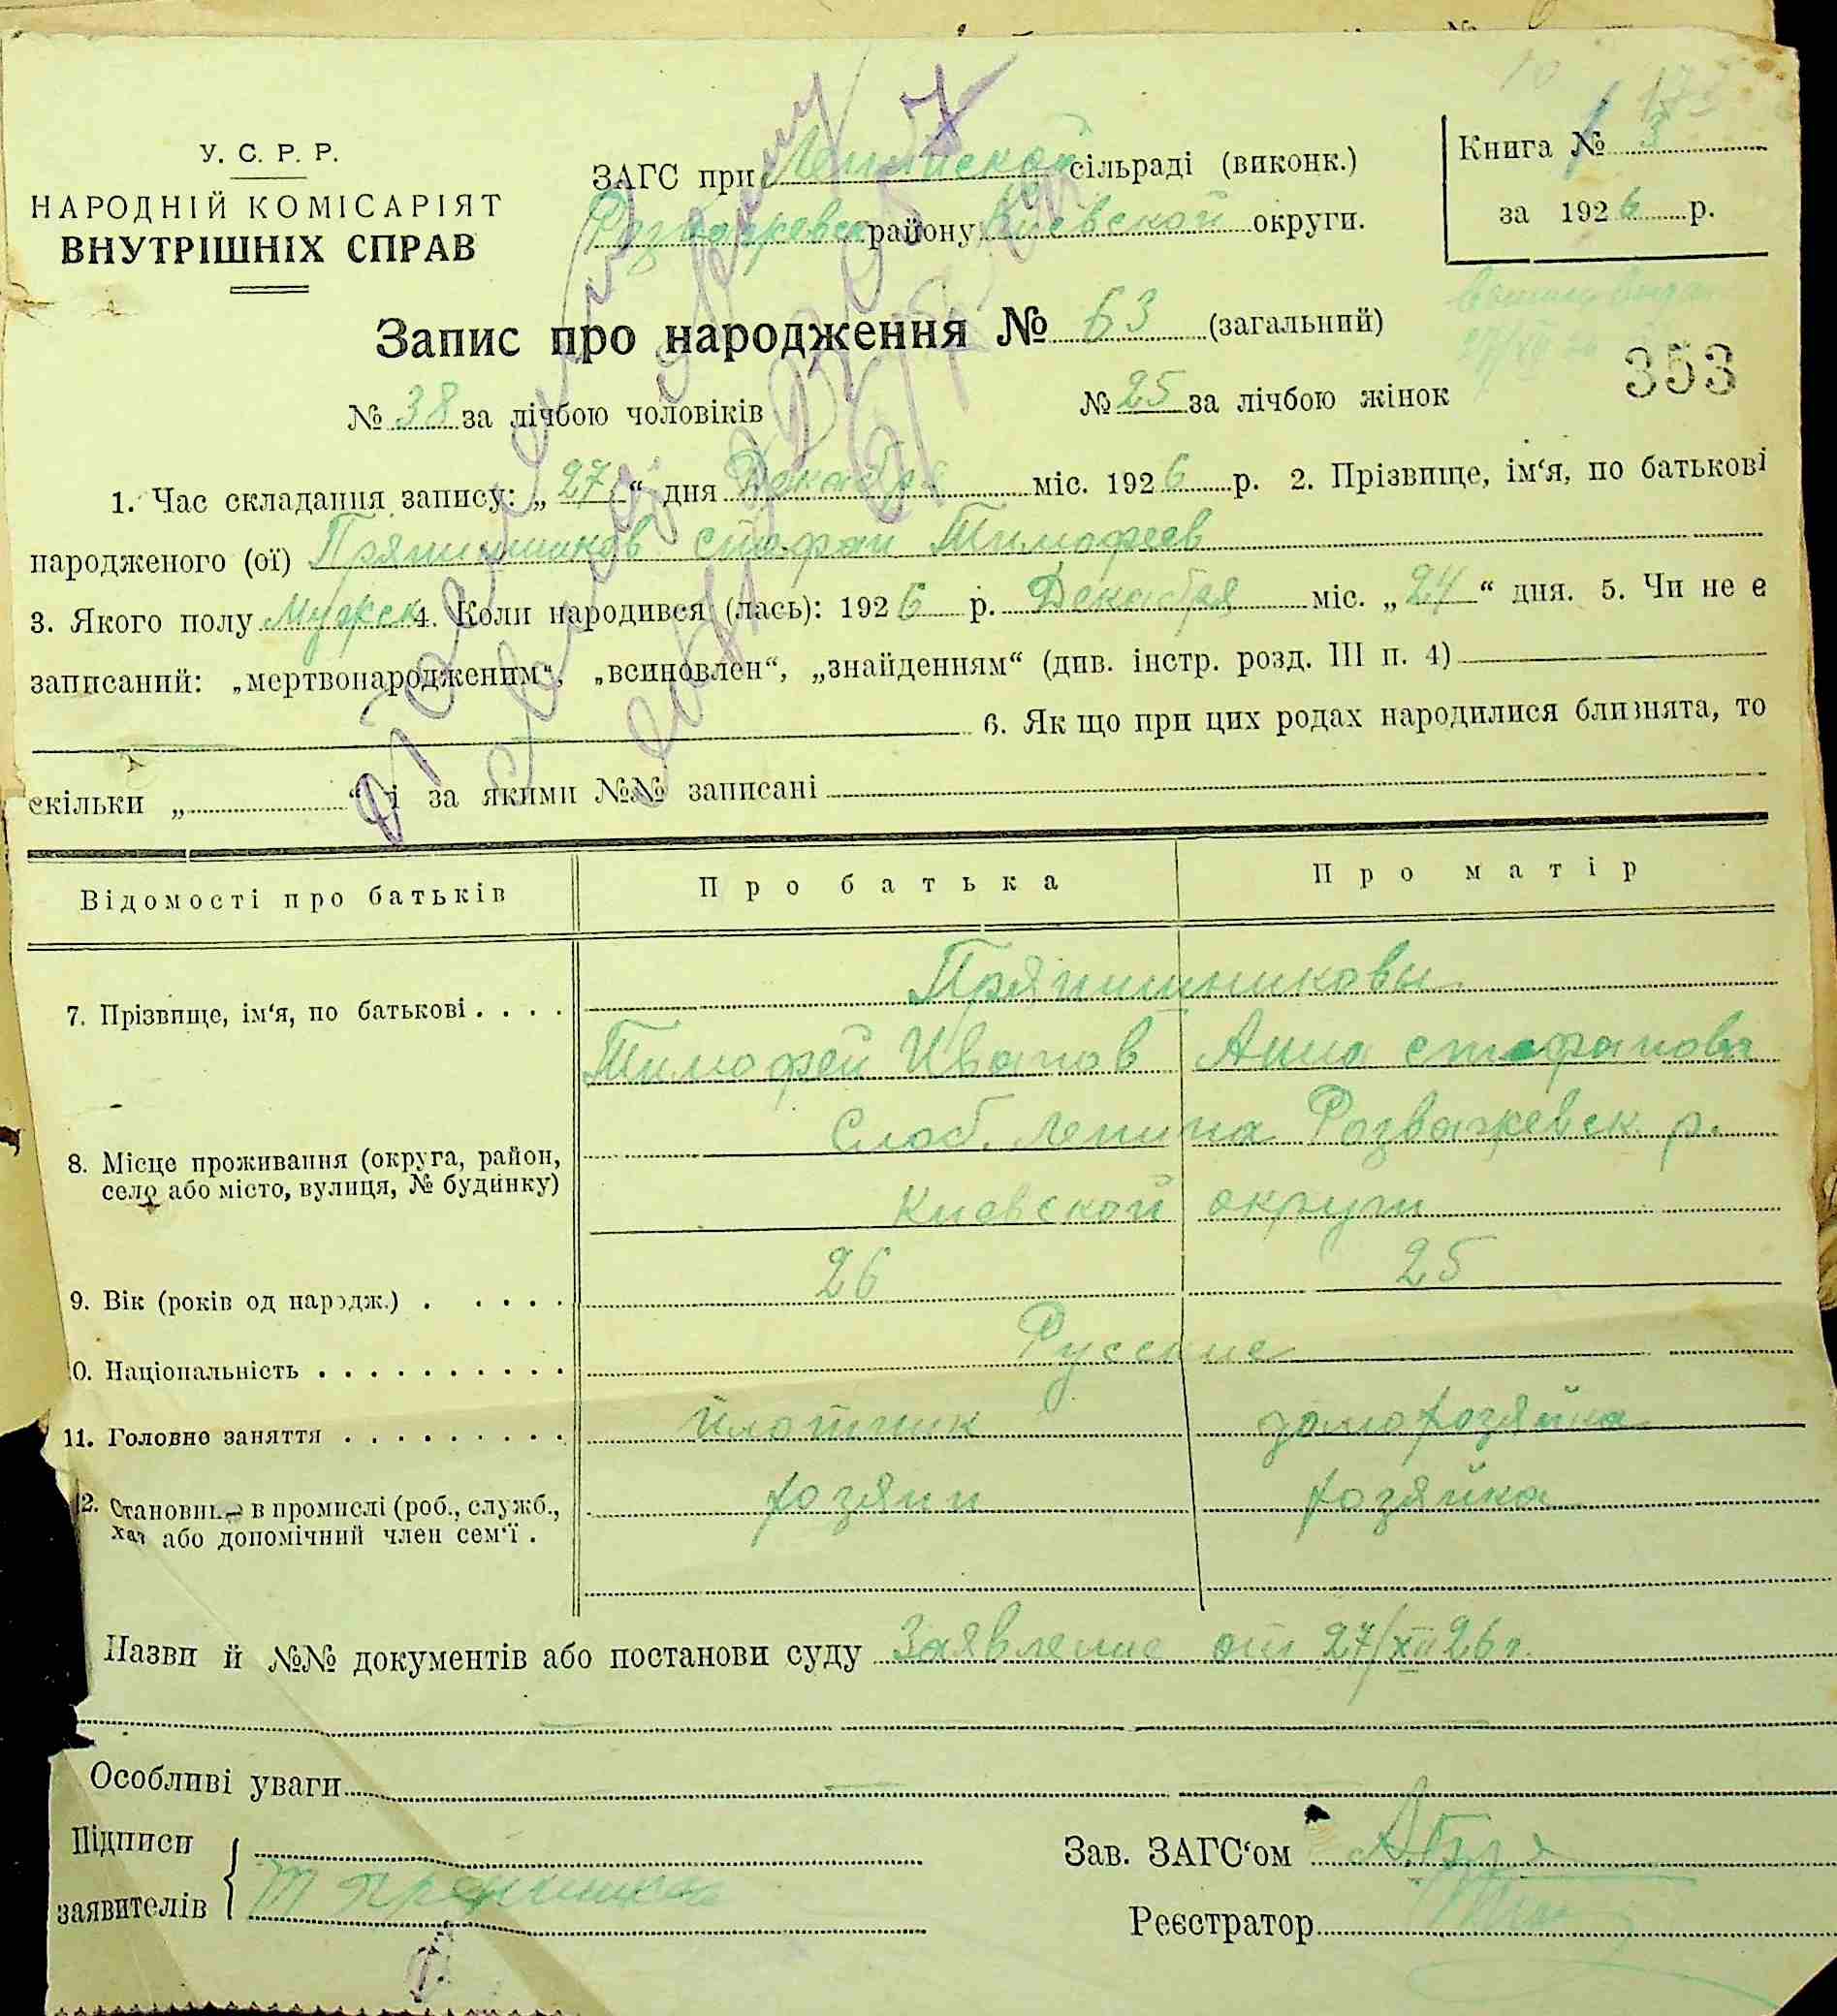 У. С. Р. Р.
НАРОДНІЙ КОМІСАРІЯТ
ВНУТРІШНІХ СПРАВ
ЗАГС при Ленинской сільраді (виконк.)
Розважевск району Киевской округи.
Книга № 3
за 1926 р.
Запис про народження № 63 (загальний)
27/XII 26
353
№ 38 за лічбою чоловіків № 25 за лічбою жінок
1. Час складання запису: „27“ дня Декабря міс. 1926 р. 2. Прізвище, ім‘я, по батькові
народженого (ої) Прянишников Стефан Тимофеев
3. Якого полу Мужск 4. Коли народився (лась): 1926 р. Декабря міс. „24“ дня. 5. Чи не є
записаний: „мертвонародженим“, „всиновлен“, „знайденням“ (див. інстр. розд. III п. 4)
6. Як що при цих родах народилися близнята, то
скільки „ “ і за якими №№ записані
Відомості про батьків Про батька Про матір
Прянишниковы
7. Прізвище, ім‘я, по батькові . . . .
Тимофей Иванов Анна Стефанова
Слоб. Ленина Розважевск. р.
8. Місце проживання (округа, район,
село або місто, вулиця, № будинку)
Киевской округи
9. Вік (років од народж.) . . . . . 26 25
0. Національність . . . . . . . . . . Русские
11. Головне заняття . . . . . . . . . плотник домохозяйка
2. Становище в промислі (роб., служб., хозяин хозяйка
хаз або допомічний член сем‘ї .
Назви й №№ документів або постанови суду Заявление от 27/XII 26 г.
Особливі уваги
Підписи
заявителів
Зав. ЗАГС‘ом
Реєстратор